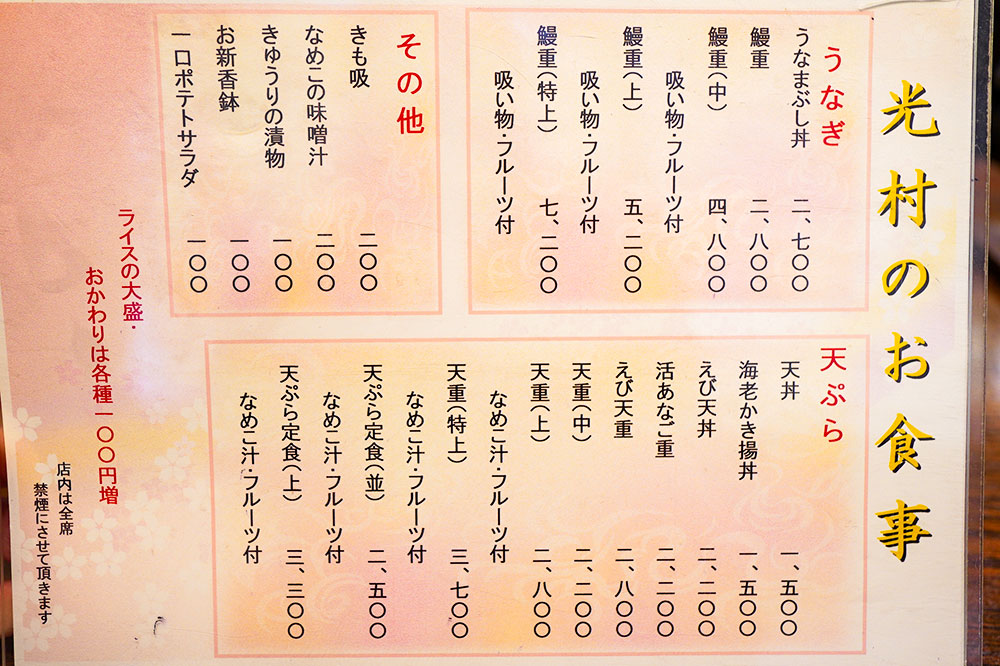 光村のお食事
うなぎ
うなまぶし丼 二、七〇〇
鰻重 二、八〇〇
鰻重(中) 四、八〇〇
吸い物・フルーツ付
鰻重(上) 五、二〇〇
吸い物・フルーツ付
鰻重(特上) 七、二〇〇
吸い物・フルーツ付
その他
きも吸 二〇〇
なめこの味噌汁 二〇〇
きゅうりの漬物 一〇〇
お新香鉢 一〇〇
一口ポテトサラダ 一〇〇
天ぷら
天丼 一、五〇〇
海老かき揚丼 一、五〇〇
えび天丼 二、二〇〇
活あなご重 二、二〇〇
えび天重 二、八〇〇
天重(中) 二、二〇〇
天重(上) 二、八〇〇
なめこ汁・フルーツ付
天重(特上) 三、七〇〇
なめこ汁・フルーツ付
天ぷら定食(並) 二、五〇〇
なめこ汁・フルーツ付
天ぷら定食(上) 三、三〇〇
なめこ汁・フルーツ付
ライスの大盛・
おかわりは各種一〇〇円増
店内は全席
禁煙にさせて頂きます